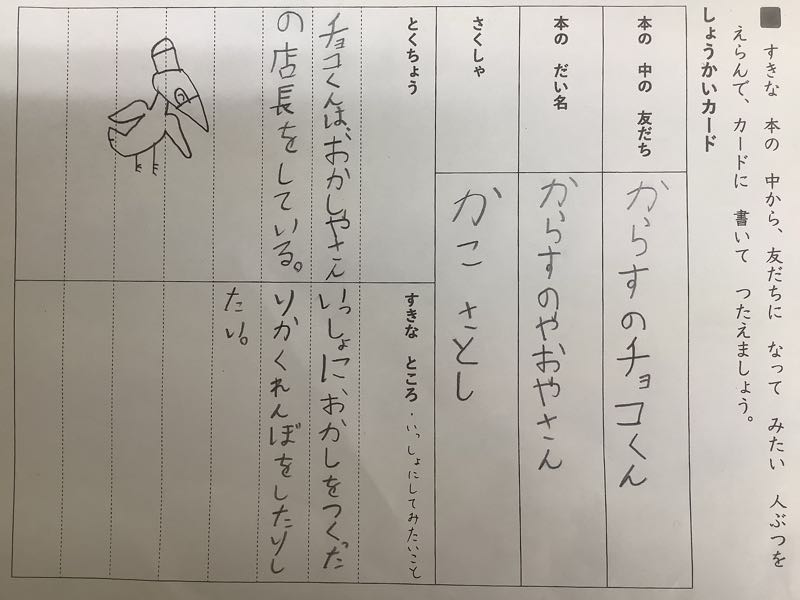 すきな 本の 中から、友だちに なって みたい 人ぶつを
えらんで、カードに 書いて つたえましょう。
しょうかいカード
本の 中の 友だち
からすのチョコくん
本の だい名
からすのやおやさん
さくしゃ
かこ さとし
とくちょう
チョコくんはおかしやさん
の店長をしている。
すきな ところ・いっしょにしてみたいこと
いっしょにおかしをつくった
りかくれんぼをしたりし
たい。